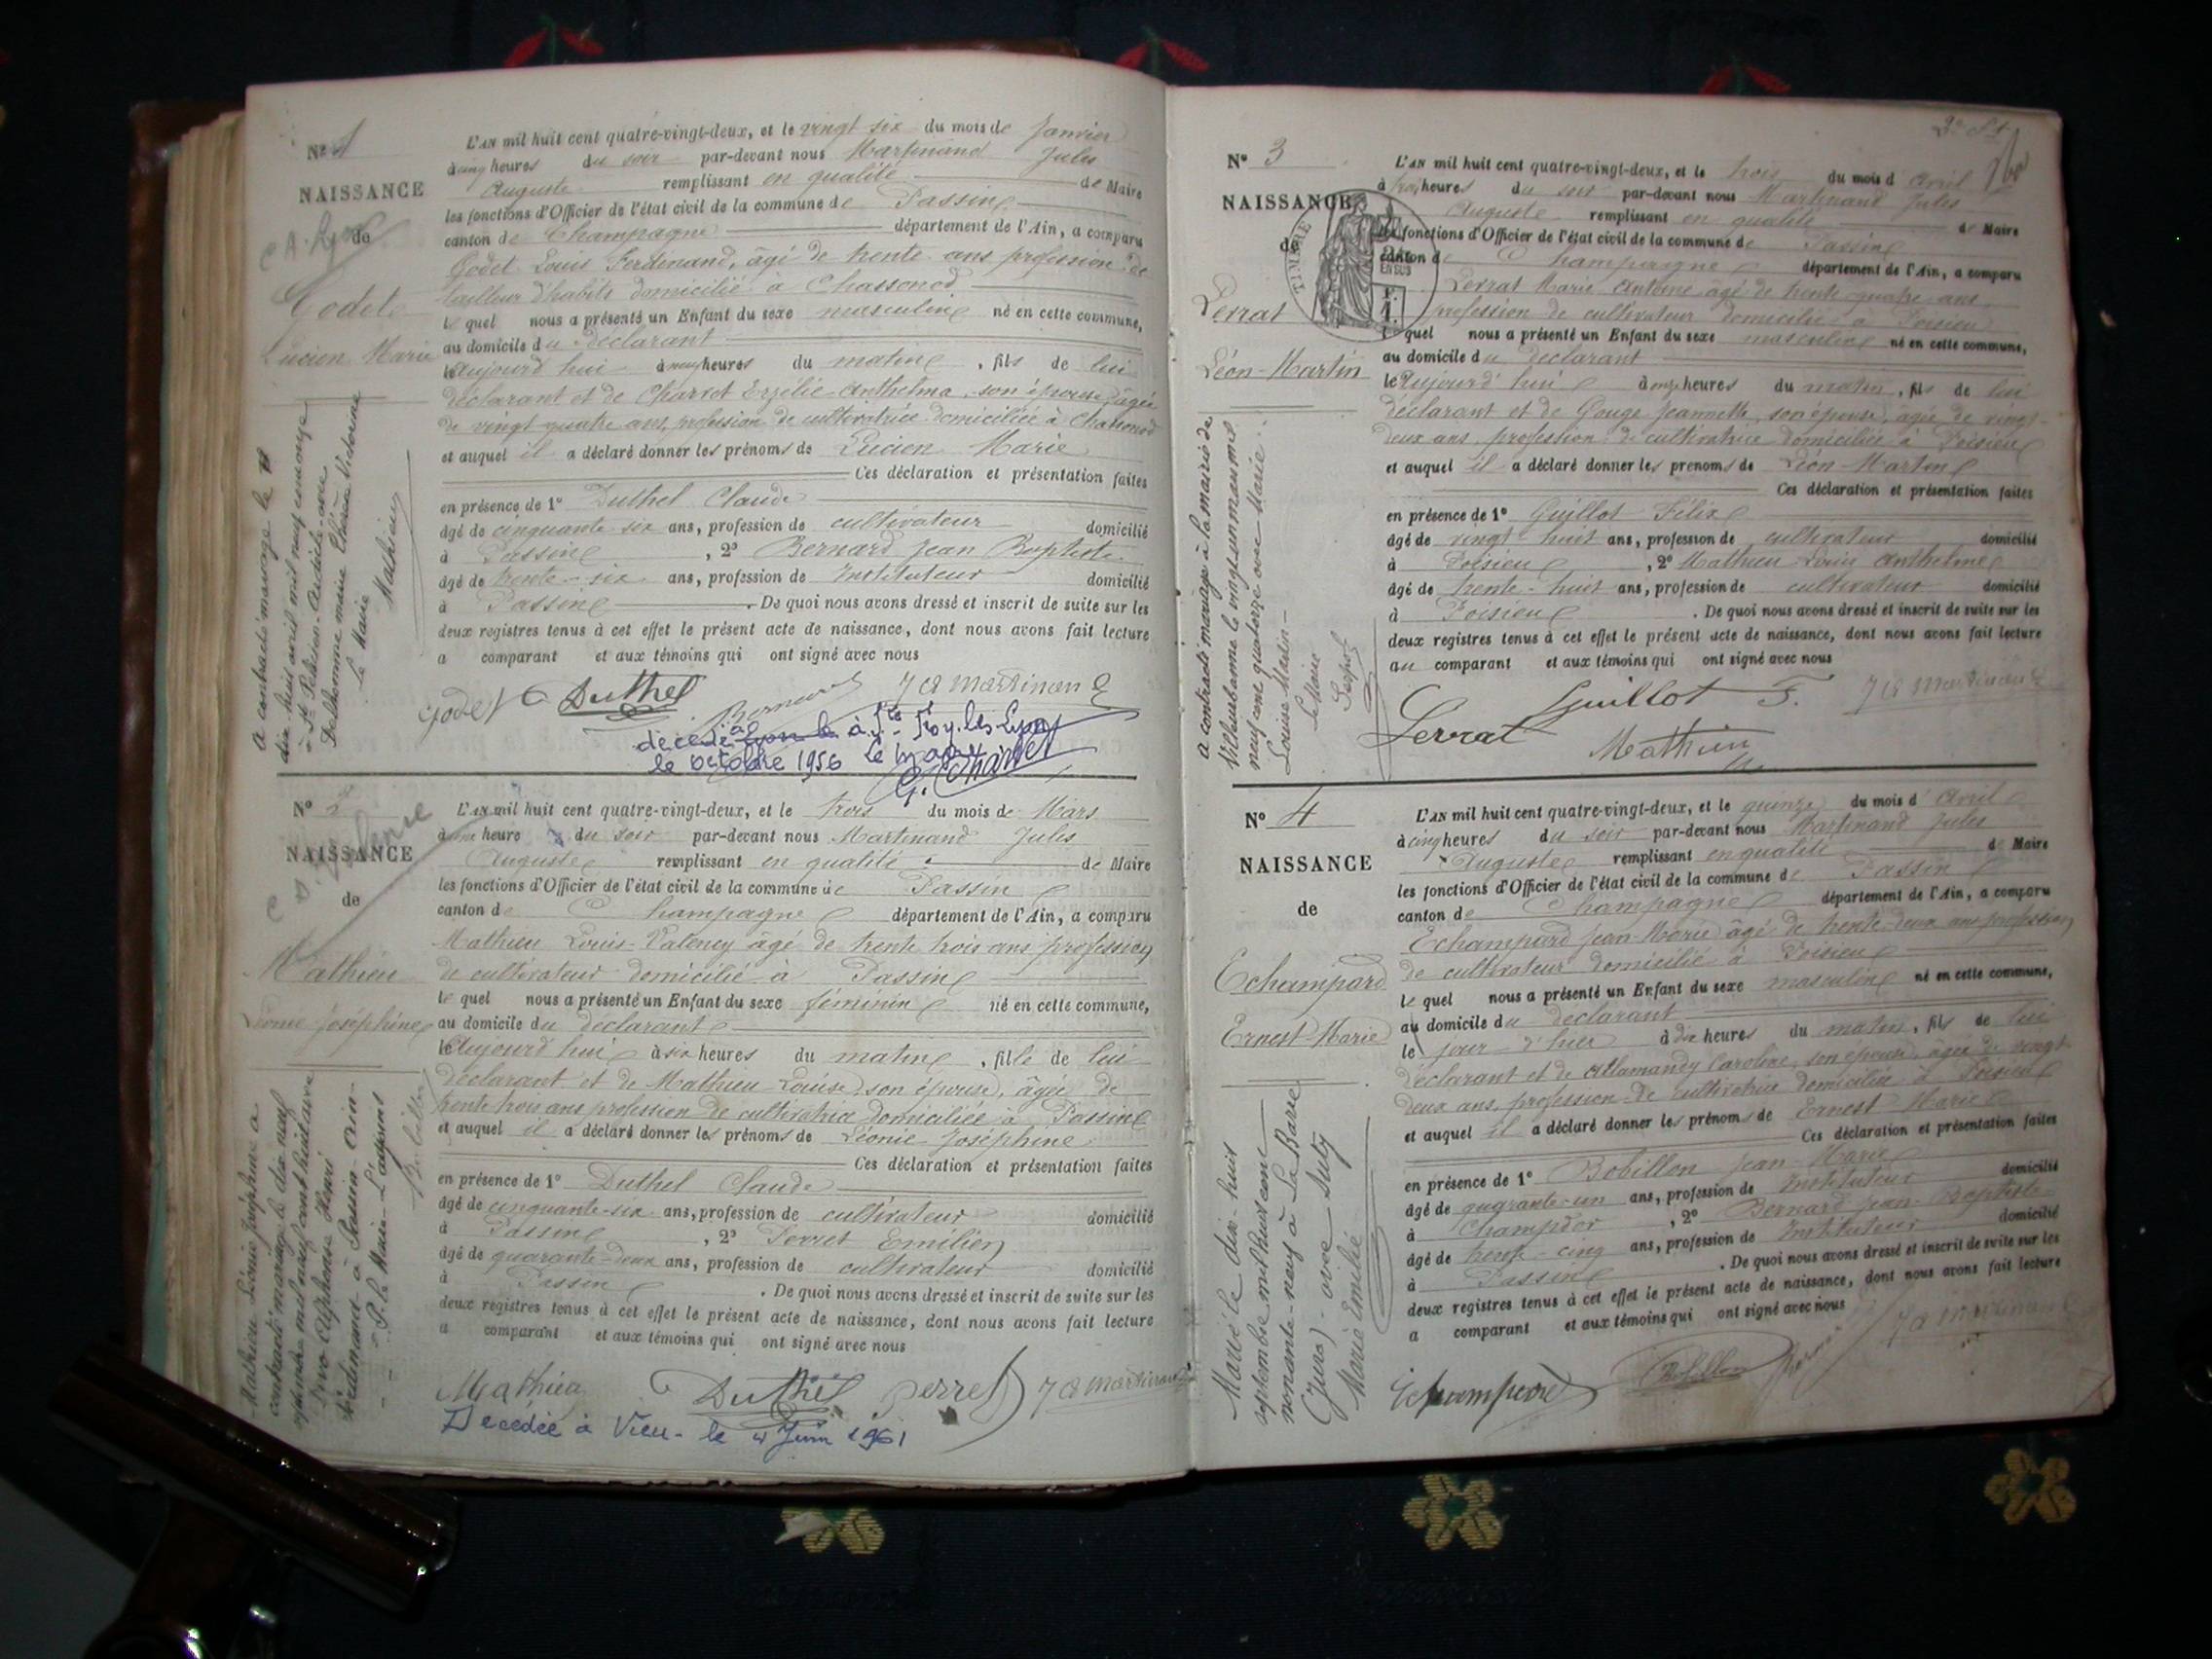 N° 1
NAISSANCE
de
Godet
Lucien Marie
A contracté mariage le
dix huit avril mil neuf cent
Delhomme marie Thérèse Victorine
Le Maire
Mathieu
L'AN mil huit cent quatre-vingt-deux, et le vingt six du mois de Janvier
à cinq heures du soir par-devant nous Martinand Jules
Auguste remplissant en qualité de Maire
les fonctions d'Officier de l'état civil de la commune de Passin
canton de Champagne département de l'Ain, a comparu
Godet Louis Ferdinand, âgé de trente ans profession de
tailleur d'habits domicilié à Chassonod
le quel nous a présenté un Enfant du sexe masculin né en cette commune,
au domicile du déclarant
le aujourd'hui à neuf heures du matin, fils de lui
déclarant et de Charvet Anthelma, son épouse, âgée
de vingt quatre ans, profession de cultivatrice domiciliée à Chassonod
et auquel il a déclaré donner les prénoms de Lucien Marie
Ces déclaration et présentation faites
en présence de 1° Duthel Claude
âgé de cinquante six ans, profession de cultivateur domicilié
à Passin, 2° Bernard Jean Baptiste
âgé de trente-six ans, profession de Instituteur domicilié
à Passin. De quoi nous avons dressé et inscrit de suite sur les
deux registres tenus à cet effet le présent acte de naissance, dont nous avons fait lecture
a comparant et aux témoins qui ont signé avec nous
Godet C Duthel Bernard J A Martinand
décédé à Ste-Foy-les-Lyon
le octobre 1956 Le
G. Charvet
N° 2
NAISSANCE
de
Mathieu
Léonie Joséphine
Mathieu Léonie Joséphine a
contracté mariage le dix neuf
septembre mil neuf cent
Alphonse Henri
Ferdinand à Passin Ain
P. le Maire L'adjoint
Bobillon
L'AN mil huit cent quatre-vingt-deux, et le trois du mois de Mars
à une heure du soir par-devant nous Martinand Jules
Auguste remplissant en qualité de Maire
les fonctions d'Officier de l'état civil de la commune de Passin
canton de Champagne département de l'Ain, a comparu
Mathieu Louis-Valency âgé de trente trois ans profession
de cultivateur domicilié à Passin
le quel nous a présenté un Enfant du sexe féminin né en cette commune,
au domicile du déclarant
le aujourd'hui à six heures du matin, fille de lui
déclarant et de Mathieu Louise, son épouse, âgée de
trente trois ans profession de cultivatrice domiciliée à Passin
et auquel il a déclaré donner les prénoms de Léonie Joséphine
Ces déclaration et présentation faites
en présence de 1° Duthel Claude
âgé de cinquante-six ans, profession de cultivateur domicilié
à Passin, 2° Perret Emilien
âgé de quarante-deux ans, profession de cultivateur domicilié
à Passin. De quoi nous avons dressé et inscrit de suite sur les
deux registres tenus à cet effet le présent acte de naissance, dont nous avons fait lecture
a comparant et aux témoins qui ont signé avec nous
Mathieu C Duthel Perret J A Martinand
Décédée à Vieu - le 4 Juin 1961
N° 3
NAISSANCE
de
TIMBRE
EN SUS
Perrat
Léon-Martin
A contracté mariage à la mairie de
Villeurbanne le vingt-un mars mil
neuf cent quatorze avec Marie
Louise Martin
Le Maire
L'AN mil huit cent quatre-vingt-deux, et le trois du mois d'avril
à trois heures du soir par-devant nous Martinand Jules
Auguste remplissant en qualité de Maire
les fonctions d'Officier de l'état civil de la commune de Passin
canton de Champagne département de l'Ain, a comparu
Perrat Marie Antoine âgé de trente quatre ans
profession de cultivateur domicilié à Poisieu
le quel nous a présenté un Enfant du sexe masculin né en cette commune,
au domicile du déclarant
le aujourd'hui à onze heures du matin, fils de lui
déclarant et de Gouge Jeannette, son épouse, âgée de vingt-
deux ans, profession de cultivatrice domiciliée à Poisieu
et auquel il a déclaré donner les prénoms de Léon-Martin
Ces déclaration et présentation faites
en présence de 1° Guillot Félix
âgé de vingt-huit ans, profession de cultivateur domicilié
à Poisieu, 2° Mathieu Louis Anthelme
âgé de trente-huit ans, profession de cultivateur domicilié
à Poisieu. De quoi nous avons dressé et inscrit de suite sur les
deux registres tenus à cet effet le présent acte de naissance, dont nous avons fait lecture
au comparant et aux témoins qui ont signé avec nous
Perrat Guillot F. J A Martinand
Mathieu
N° 4
NAISSANCE
de
Echampard
Ernest-Marie
Marié le dix-huit
septembre mil huit cent
nonante-neuf à La Barre
(Jura) - avec Suty
Marie Emélie
L'AN mil huit cent quatre-vingt-deux, et le quinze du mois d'avril
à cinq heures du soir par-devant nous Martinand Jules
Auguste remplissant en qualité de Maire
les fonctions d'Officier de l'état civil de la commune de Passin
canton de Champagne département de l'Ain, a comparu
Echampard Jean-Marie âgé de trente-deux ans profession
de cultivateur domicilié à Poisieu
le quel nous a présenté un Enfant du sexe masculin né en cette commune,
au domicile du déclarant
le jour d'hier à dix heures du matin, fils de lui
déclarant et de Allamandy Caroline, son épouse, âgée de vingt-
deux ans, profession de cultivatrice domiciliée à Poisieu
et auquel il a déclaré donner les prénoms de Ernest Marie
Ces déclaration et présentation faites
en présence de 1° Bobillon Jean-Marie
âgé de quarante-un ans, profession de Instituteur domicilié
à Champdor, 2° Bernard Jean-Baptiste
âgé de trente-cinq ans, profession de Instituteur domicilié
à Passin. De quoi nous avons dressé et inscrit de suite sur les
deux registres tenus à cet effet le présent acte de naissance, dont nous avons fait lecture
a comparant et aux témoins qui ont signé avec nous
Echampard Bobillon J A Martinand